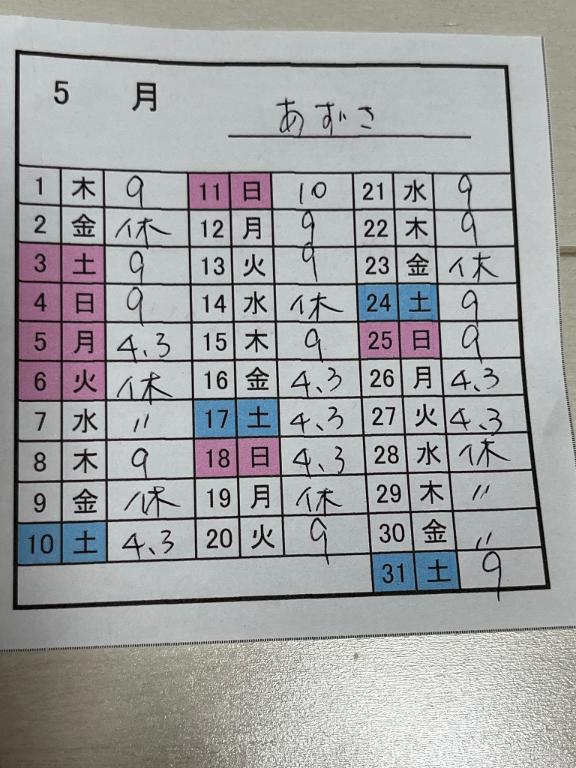 5 月 あずさ
1 木 9 11 日 10 21 水 9
2 金 休 12 月 9 22 木 9
3 土 9 13 火 9 23 金 休
4 日 9 14 水 休 24 土 9
5 月 4.3 15 木 9 25 日 9
6 火 休 16 金 4.3 26 月 4.3
7 水 〃 17 土 4.3 27 火 4.3
8 木 9 18 日 4.3 28 水 休
9 金 休 19 月 休 29 木 〃
10 土 4.3 20 火 9 30 金 〃
31 土 9